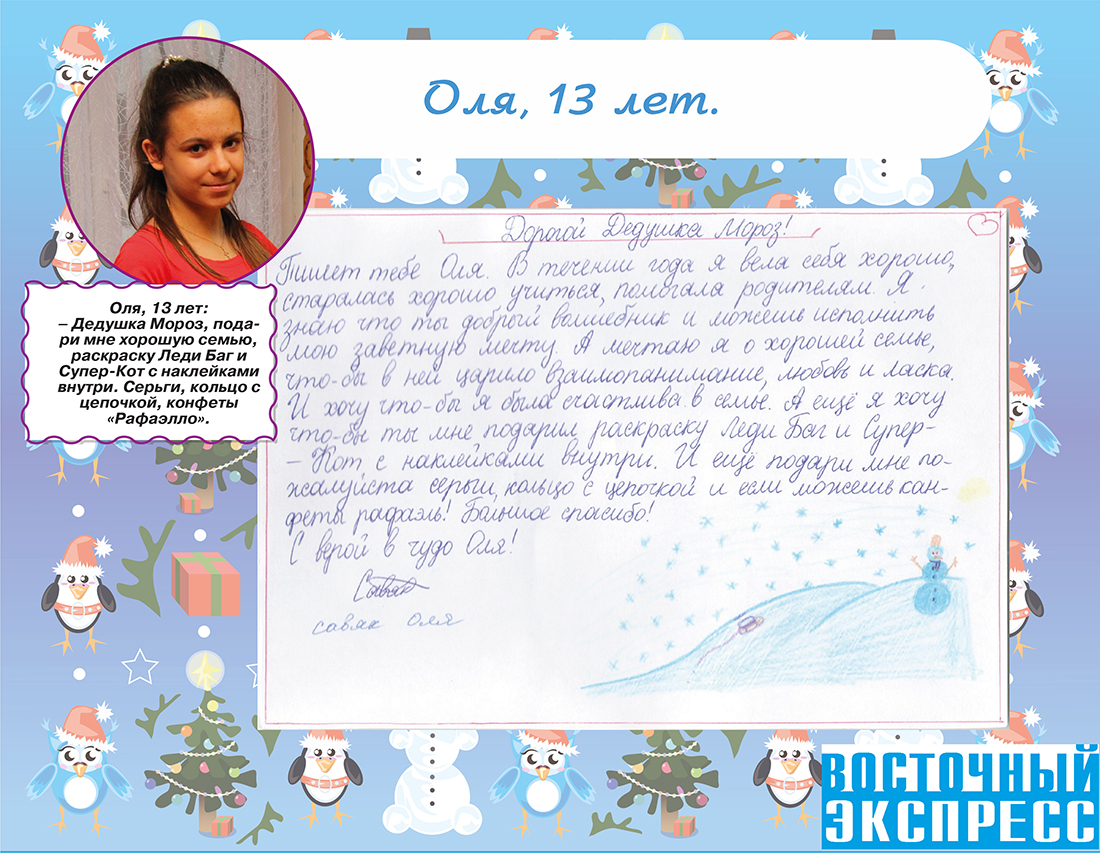 Оля, 13 лет.
Оля, 13 лет:
– Дедушка Мороз, пода-
ри мне хорошую семью,
раскраску Леди Баг и
Супер-Кот с наклейками
внутри. Серьги, кольцо с
цепочкой, конфеты
«Рафаэлло».
Дорогой Дедушка Мороз!
Пишет тебе Оля. В течении года я вела себя хорошо,
старалась хорошо учиться, помогала родителям. Я
знаю что ты добрый волшебник и можешь исполнить
мою заветную мечту. А мечтаю я о хорошей семье,
что-бы в ней царило взаимопанимание, любовь и ласка.
И хочу что-бы я была счастлива в семье. А ещё я хочу
что-бы ты мне подарил раскраску Леди Баг и Супер-
- Кот, с наклейками внутри. И ещё подари мне по-
жалуйста серьги, кольцо с цепочкой и если можешь кан-
феты рафаэль! Большое спасибо!
С верой в чудо Оля!
савяк Оля
ВОСТОЧНЫЙ
ЭКСПРЕСС